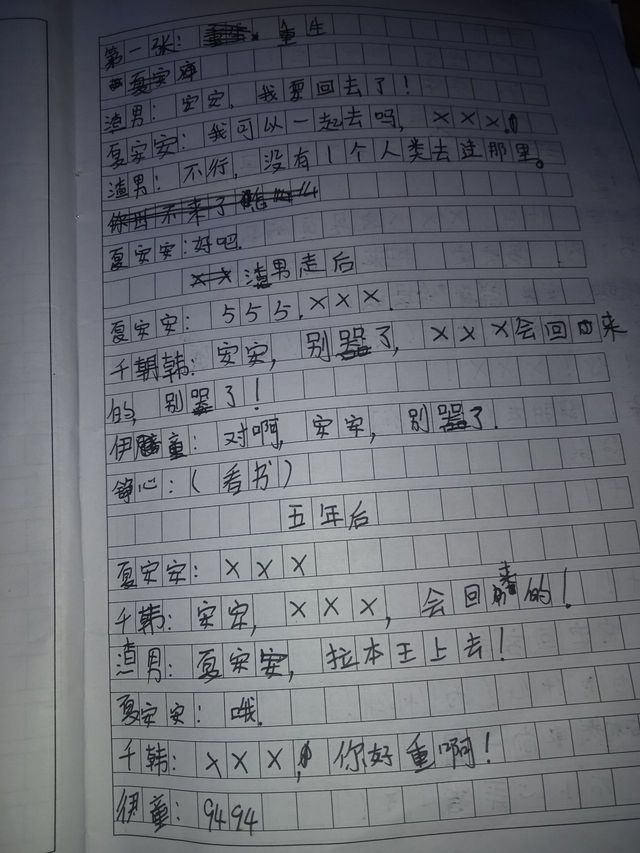 第一张: 重生
渣男: 安安, 我要回去了!
夏安安: 我可以一起去吗, ×××。
渣男: 不行, 没有1个人类去过那里。
夏安安: 好吧.
渣男走后
夏安安: 555, ×××.
千朝韩: 安安, 别哭了, ×××会回来
的, 别哭了!
伊腾童: 对啊, 安安, 别哭了.
铮心: (看书)
五年后
夏安安: ×××
千韩: 安安, ×××, 会回来的!
渣男: 夏安安, 拉本王上去!
夏安安: 哦.
千韩: ×××, 你好重啊!
伊童: 9494